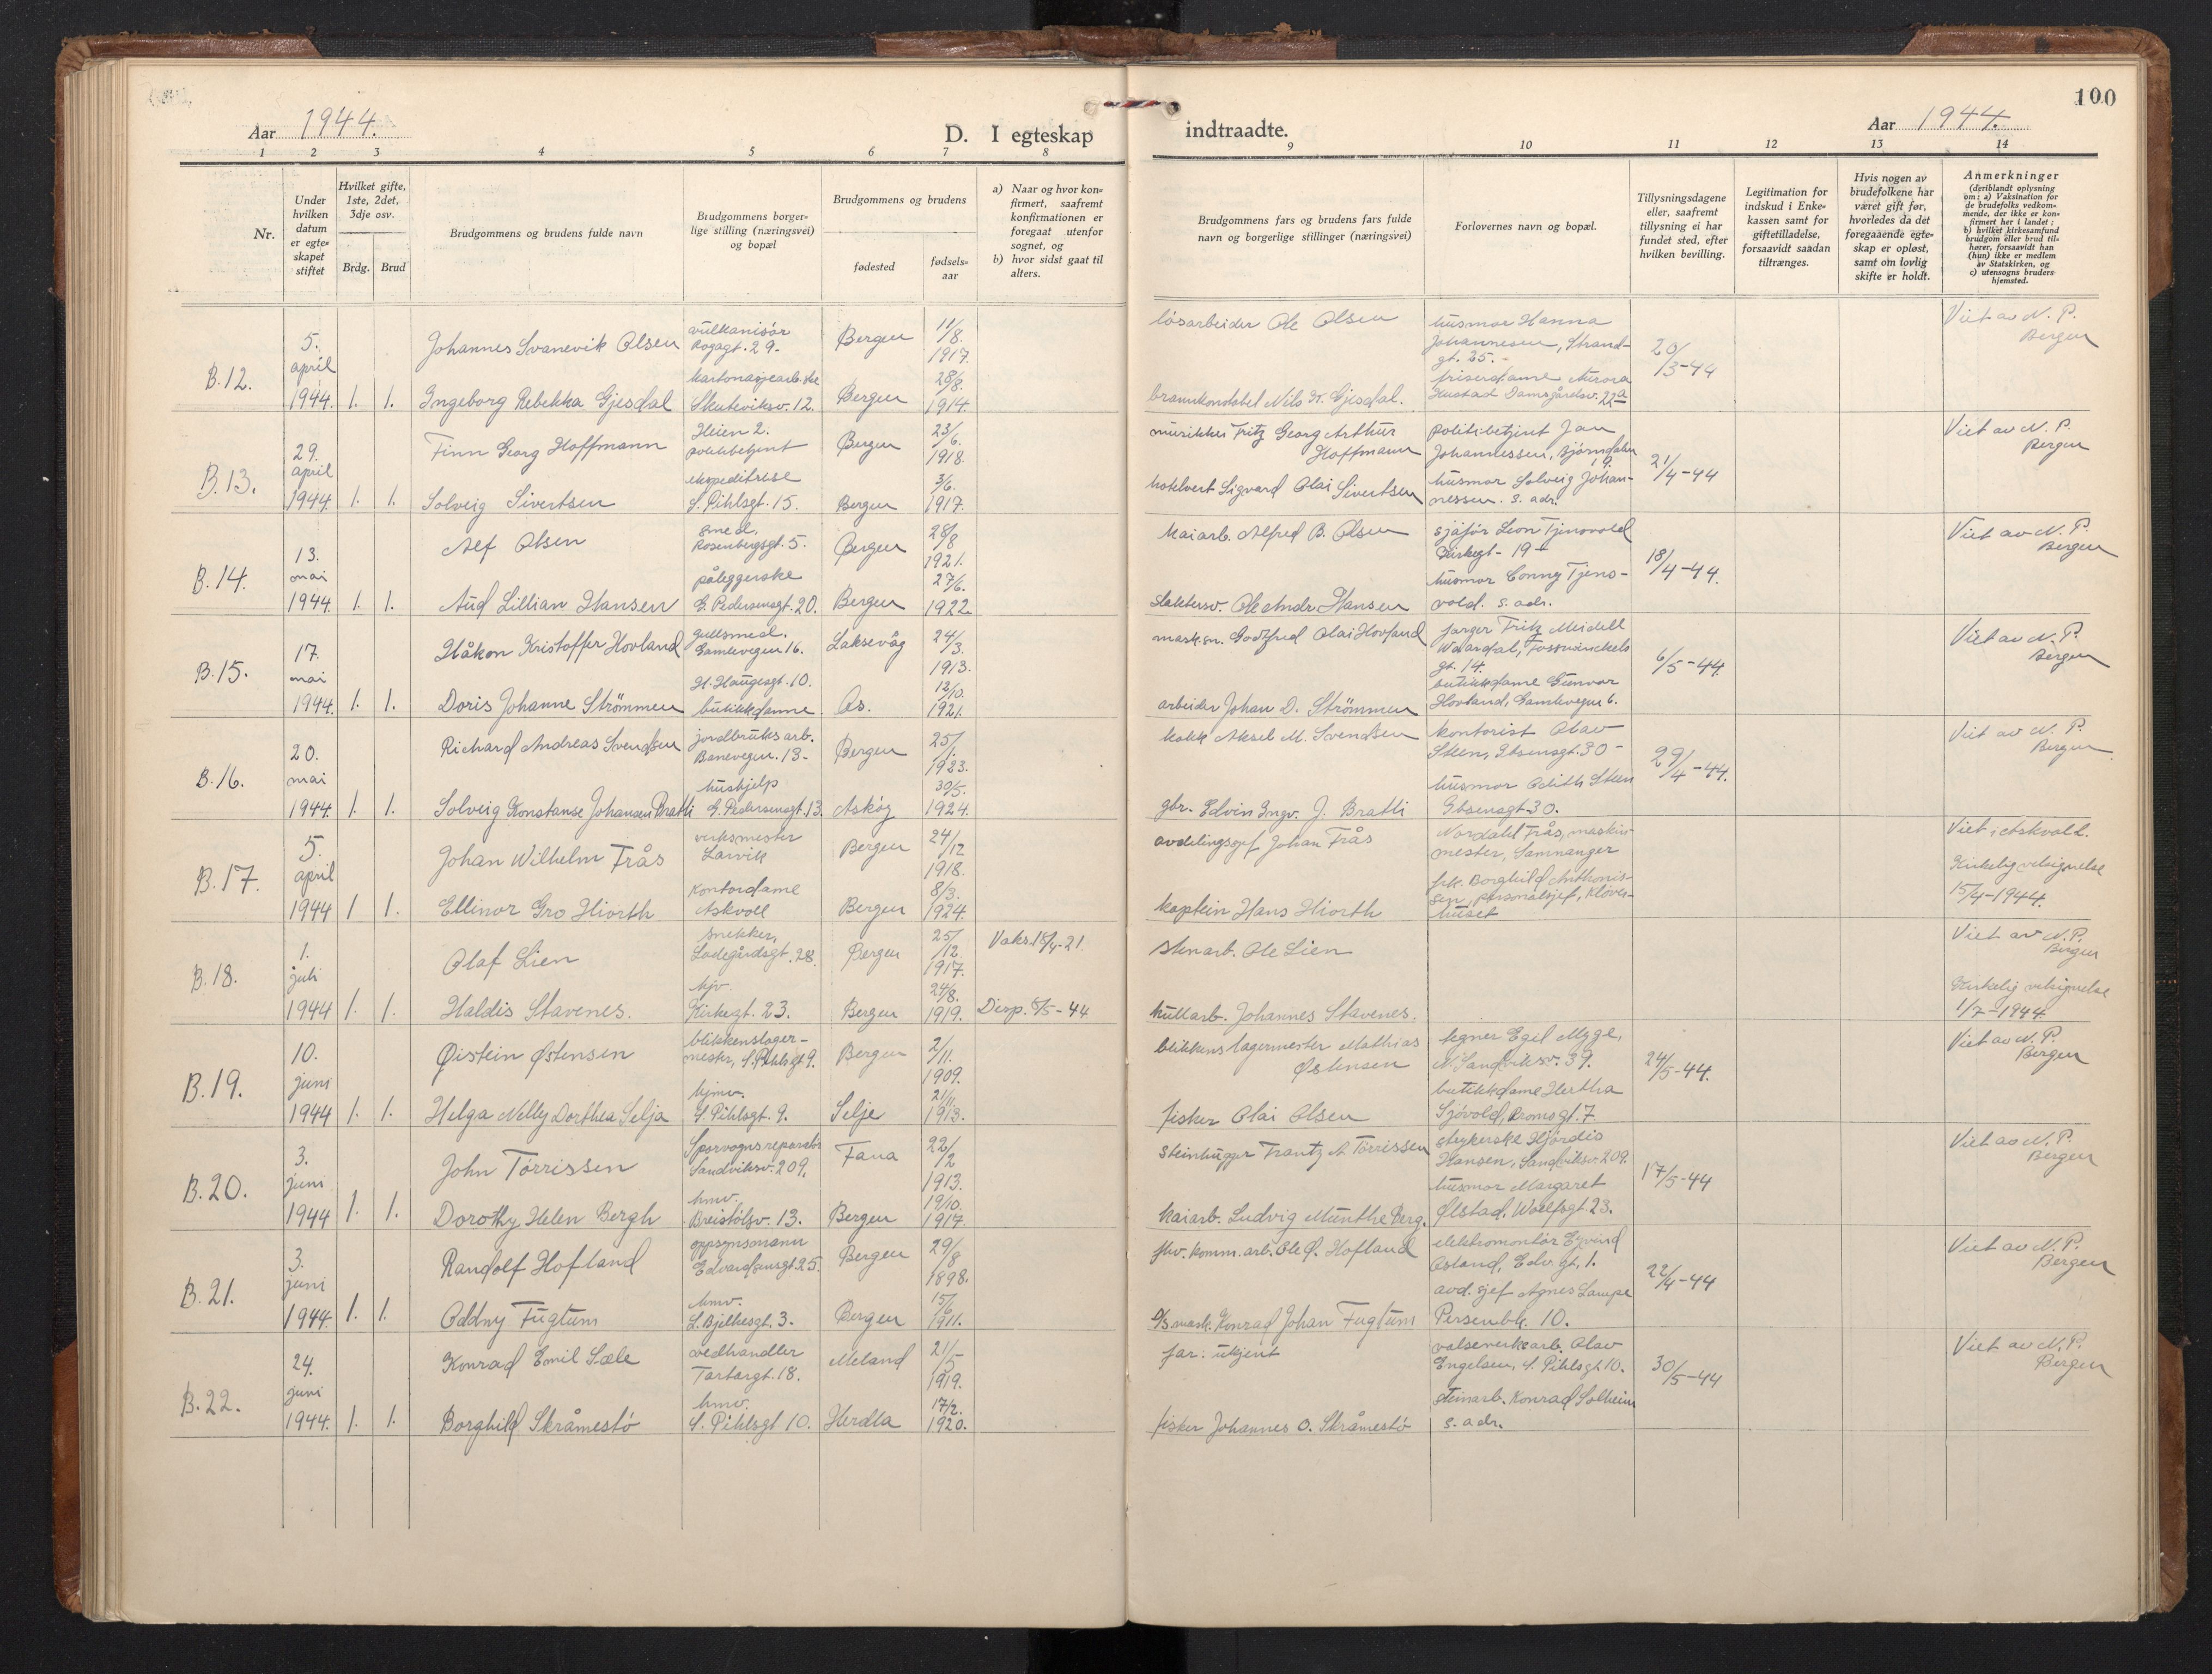 100
Aar 1944.
D. I egteskap
indtraadte.
Aar 1944.
1 2 3 4 5 6 7 8 9 10 11 12 13 14
Nr.
Under hvilken datum er egte- skapet stiftet
Hvilket gifte, 1ste, 2det, 3dje osv.
Brdg. Brud
Brudgommens og brudens fulde navn
Brudgommens borger- lige stilling (næringsvei) og bopæl
Brudgommens og brudens
fødested
fødsels- aar
a) Naar og hvor kon- firmert, saafremt konfirmationen er foregaat utenfor sognet, og
b) hvor sidst gaat til alters.
Brudgommens fars og brudens fars fulde navn og borgerlige stillinger (næringsvei)
Forlovernes navn og bopæl.
Tillysningsdagene eller, saafremt tillysning ei har fundet sted, efter hvilken bevilling.
Legitimation for indskud i Enke- kassen samt for giftetilladelse, forsaavidt saadan tiltrænges.
Hvis nogen av brudefolkene har været gift før, hvorledes da det foregaaende egte- skap er opløst, samt om lovlig skifte er holdt.
Anmerkninger
(deriblandt oplysning om: a) Vaksination for de brudefolks vedkom- mende, der ikke er kon- firmert her i landet; b) hvilket kirkesamfund brudgom eller brud til- hører, forsaavidt han (hun) ikke er medlem av Statskirken, og c) utensogns bruders hjemsted.
B.12. 5. april 1944. 1. 1.
Johannes Svanevik Olsen vulkanisør 29. Bergen 11/8. 1917. løsarbeider Ole Olsen husmor Hanna Johannesen, Strand- gt. 35. 20/3-44 Viet av N. P. Bergen
Ingeborg Rebekka Gjesdal Skuteviksv. 12. Bergen 28/8. 1914. brannkonstabel Nils K. Gjesdal. friserdame Aurora Hustad Damsgårdsv. 22a
B.13. 29. april 1944. 1. 1.
Finn Georg Hoffmann Heien 2. politibetjent Bergen 23/6. 1918. musikker Fritz Georg Arthur Hoffmann politibetjent Jan Johannessen, Bjørndalen 19. 21/4-44 Viet av N. P. Bergen
Solveig Sivertsen ekspeditrise S. Pihlsgt. 15. Bergen 3/6. 1917. hotelvert Sigvard Olai Sivertsen husmor Solveig Johan- nessen. s. adr.
B.14. 13. mai 1944. 1. 1.
Alf Olsen smed, Rosenbergsgt. 5. Bergen 28/8 1921. Kaiarb. Alfred B. Olsen sjåfør Leon Tjenovold Kirkegt- 19- 18/4-44. Viet av N. P. Bergen
Aud Lillian Hansen påleggerske G. Pedersensgt. 20. Bergen 27/6. 1922. Slaktersv. Ole Andr. Hansen husmor Conny Tjeno- vold. s. adr.
B.15. 17. mai 1944. 1. 1.
Håkon Kristoffer Hovland gullsmed. Gamlevegen 16. Laksevåg 24/3. 1913. Godtfred Olai Hovland farger Fritz Meidell Waardal, Fosswinckels gt. 14. 6/5-44. Viet av N. P. Bergen
Doris Johanne Strömmen H. Haugesgt. 10. butikkdame Os. 12/10. 1921. arbeider Johan D. Strömmen butikkdame Gunvor Hovland, Gamlevegen 6.
B.16. 20. mai 1944. 1. 1.
Richard Andreas Svendsen jordbruksarb. Banevegen. 13- Bergen 25/1. 1923. kokk Aksel M. Svendsen kontorist Olav Steen, Ibsensgt. 30- 29/4-44. Viet av N. P. Bergen
Solveig Konstanse Johansen Bratli hushjelp G. Pedersensgt. 13. Askøy 30/5. 1924. gbr. Edvin Ingv. J. Bratli husmor Edith Steen Ibsensgt 30.
B.17. 5. april 1944 1 1.
Johan Wilhelm Frås verksmester Larvik Bergen 24/12 1918. avdelingssjef Johan Frås Nordahl Frås, maskin- mester, Samnanger Viet i Askvoll. Kirkelig velsignelse 15/4-1944.
Ellinor Gro Hiorth kontordame Askvoll Bergen 8/3. 1924. kaptein Hans Hiorth frk. Borghild Anthonis- sen, personalsjef, Kløver- huset
B.18. 1. juli 1944 1. 1.
Olaf Lien snekker, Ladegårdsgt. 28. Bergen 25/12. 1917. Vaks. 15/4-21. stenarb. Ole Lien Viet av N. P. Bergen
Haldis Stavenes. hjv. Kirkegt. 23. Bergen 24/8. 1919. Disp. 8/5-44 kullarb. Johannes Stavenes. Kirkelig velsignelse 1/7-1944.
B.19. 10. juni 1944 1. 1.
Øistein Østensen blikkenslager- mester, S. Pihlsgt 9. Bergen 2/11. 1909. blikkenslagermester Mathias Østensen tegner Egil Mygl, N. Sandviksv. 39. 24/5-44. Viet av N. P. Bergen
Helga Nelly Dorthea Selja hjmv. S. Pihlsgt. 9. Selje 21/11. 1913. fisker Olai Olsen butikkdame Hertha Sjøvold, Promsgt. 7
B.20. 3. juni 1944 1. 1.
John Tørrissen Sporvognsreparatør Sandviksv. 209. Fana 22/2 1913. Steinhugger Frantz A Tørrissen strykerske Hjördis Hansen, Sandviksv. 209. 17/5-44 Viet av N. P. Bergen
Dorothy Helen Bergh hmv. Breistölsv. 13. Bergen 19/10. 1917. Kaiarb. Ludvig Munthe Berg. husmor Margaret Ølstad. Wolffsgt. 23.
B.21. 3. juni 1944. 1. 1.
Randolf Hofland oppsynsmann Edvardsensgt. 25. Bergen 29/8 1898. fhv. komm. arb. Ole Ø. Hofland elektromontør Eyvind Osland, Edv. gt. 1. 22/4-44 Viet av N. P. Bergen
Oddny Fugtum hmv. L. Bjelkesgt. 3. Bergen 15/6 1911. mask. Konrad Johan Fugtum avd. sjef Agnes Lampe Persenbk. 10.
B.22. 24. juni 1944. 1. 1.
Konrad Emil Sæle vedhandler Tartargt. 18. Meland 21/5 1919. far: ukjent valseverksarb. Olav Engelsen, S. Pihlsgt 10. 30/5-44 Viet av N. P. Bergen
Borghild Skråmestö hmv. S. Pihlsgt 10. Herdla 17/2. 1920. fisker Johannes O. Skråmestö steinarb. Konrad Solheim s. adr.